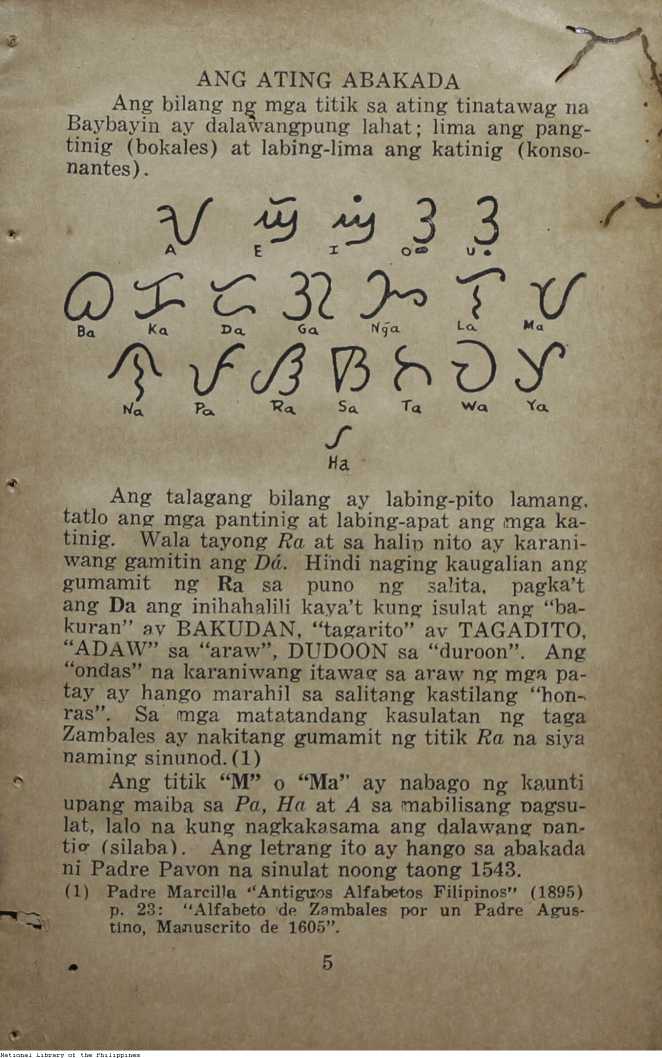 ANG ATING ABAKADA
Ang bilang ng mga titik sa ating tinatawag na
Baybayin ay dalawangpung lahat; lima ang pang-
tinig (bokales) at labing-lima ang katinig (konso-
nantes).
A E I O U
Ba Ka Da Ga Nga La Ma
Na Pa Ra Sa Ta Wa Ya
Ha
Ang talagang bilang ay labing-pito lamang,
tatlo ang mga pantinig at labing-apat ang mga ka-
tinig. Wala tayong Ra at sa halip nito ay karani-
wang gamitin ang Dá. Hindi naging kaugalian ang
gumamit ng Ra sa puno ng salita, pagka't
ang Da ang inihahalili kaya't kung isulat ang "ba-
kuran" ay BAKUDAN, "tagarito" ay TAGADITO,
"ADAW" sa "araw", DUDOON sa "duroon". Ang
"ondas" na karaniwang itawag sa araw ng mga pa-
tay ay hango marahil sa salitang kastilang "hon-
ras". Sa mga matatandang kasulatan ng taga
Zambales ay nakitang gumamit ng titik Ra na siya
naming sinunod. (1)
Ang titik "M" o "Ma" ay nabago ng kaunti
upang maiba sa Pa, Ha at A sa mabilisang pagsu-
lat, lalo na kung nagkakasama ang dalawang pan-
tig (silaba). Ang letrang ito ay hango sa abakada
ni Padre Pavon na sinulat noong taong 1543.
(1) Padre Marcilla "Antiguos Alfabetos Filipinos" (1895)
p. 23: "Alfabeto de Zambales por un Padre Agus-
tino, Manuscrito de 1605".
5
National Library of the Philippines